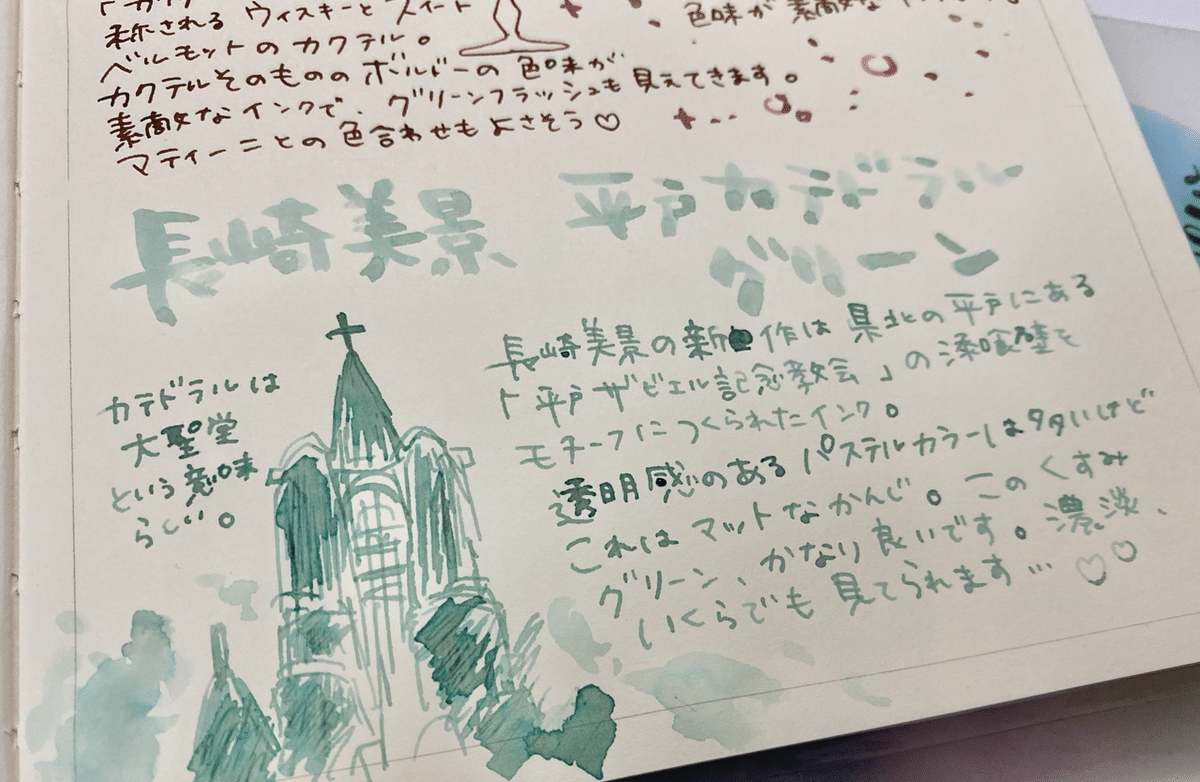 称される ウィスキーと スイート
ベルモットのカクテル。
カクテルそのもののボルドーの色味が
素敵なインクで、グリーンフラッシュも見えてきます。
マティーニとの色合わせもよさそう♡
色味が素敵な
長崎美景 平戸カテドラル
グリーン
カテドラルは
大聖堂
という意味
らしい。
長崎美景の新作は県北の平戸にある
「平戸ザビエル記念教会」の漆喰壁を
モチーフにつくられたインク。
透明感のあるパステルカラーは多いけど
これはマットなかんじ。このくすみ
グリーン、かなり良いです。濃淡、
いくらでも見てられます…♡♡